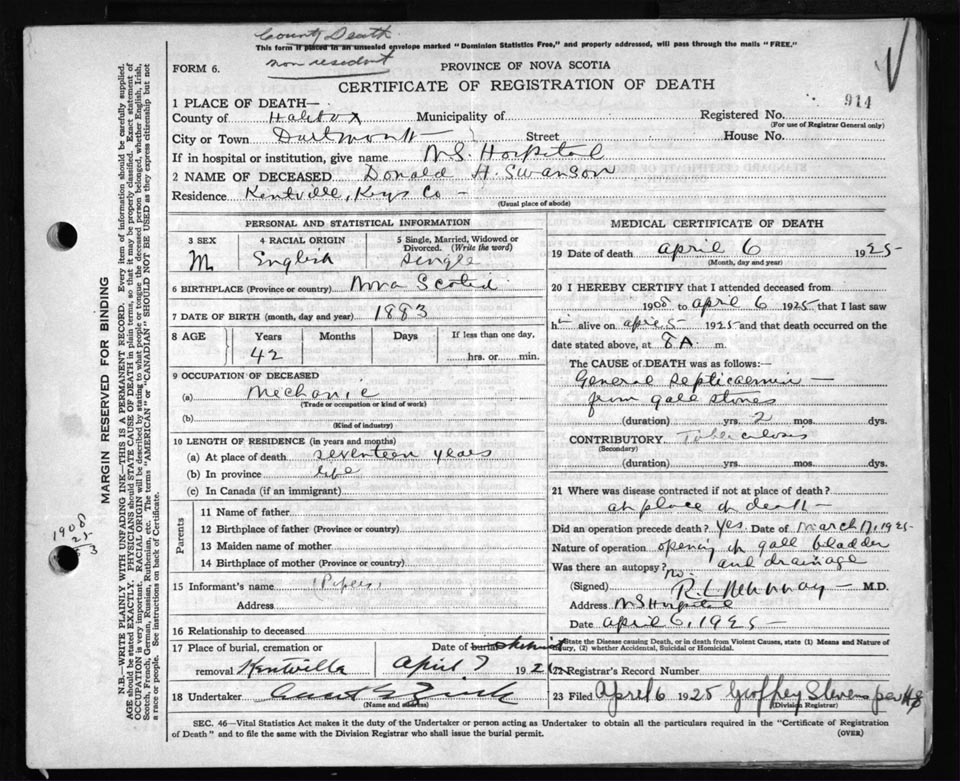 County Death
This form if placed in an unsealed envelope marked "Dominion Statistics Free," and properly addressed, will pass through the mails "FREE."
non resident
FORM 6.
PROVINCE OF NOVA SCOTIA
CERTIFICATE OF REGISTRATION OF DEATH
1 PLACE OF DEATH—
914
County of Halifax Municipality of Registered No.
(For use of Registrar General only)
City or Town Dartmouth Street House No.
If in hospital or institution, give name N.S. Hospital
2 NAME OF DECEASED Donald H. Swanson
Residence Kentville, Kings Co —
(Usual place of abode)
PERSONAL AND STATISTICAL INFORMATION
3 SEX 4 RACIAL ORIGIN 5 Single, Married, Widowed or Divorced. (Write the word)
M English single
6 BIRTHPLACE (Province or country) Nova Scotia
7 DATE OF BIRTH (month, day and year) 1883
8 AGE Years Months Days If less than one day,
42 hrs. or min.
9 OCCUPATION OF DECEASED
(a) Mechanic
(Trade or occupation or kind of work)
(b)
(Kind of industry)
10 LENGTH OF RESIDENCE (in years and months)
(a) At place of death seventeen years
(b) In province life
(c) In Canada (if an immigrant)
Parents
11 Name of father
12 Birthplace of father (Province or country)
13 Maiden name of mother
14 Birthplace of mother (Province or country)
15 Informant's name
Address
16 Relationship to deceased
17 Place of burial, cremation or Date of burial
removal Kentville April 7 192
18 Undertaker
(Name and address)
MEDICAL CERTIFICATE OF DEATH
19 Date of death April 6 1925
(Month, day and year)
20 I HEREBY CERTIFY that I attended deceased from
1908 to April 6 1925 that I last saw
him alive on April 5 1925 and that death occurred on
date stated above, at 8 A m.
The CAUSE OF DEATH was as follows:
General Septicaemia —
from gall stones
(duration) yrs. 2 mos. dys.
CONTRIBUTORY Tuberculosis
(Secondary)
(duration) yrs. mos. dys.
21 Where was disease contracted if not at place of death?
at place of death —
Did an operation precede death? Yes. Date of March 17, 1925
Nature of operation opening of gall bladder
and drainage
Was there an autopsy? No.
(Signed) M.D.
Address N S Hospital
Date April 6, 1925 —
State the Disease causing Death, or in death from Violent Causes, state (1) Means and Nature of Injury, (2) whether Accidental, Suicidal or Homicidal.
22 Registrar's Record Number
23 Filed April 6 1925 Geoffrey Stevens
(Division Registrar)
SEC. 46—Vital Statistics Act makes it the duty of the Undertaker or person acting as Undertaker to obtain all the particulars required in the "Certificate of Registration
of Death" and to file the same with the Division Registrar who shall issue the burial permit.
(OVER)
MARGIN RESERVED FOR BINDING
N.B.—WRITE PLAINLY WITH UNFADING INK—THIS IS A PERMANENT RECORD. Every item of information should be carefully supplied.
AGE should be stated EXACTLY. PHYSICIANS should STATE CAUSE OF DEATH in plain terms, so that it may be properly classified. Exact statement of
OCCUPATION is very important. RACIAL ORIGIN will be described by stating to what people or tongue the deceased person belonged, whether English, Irish,
Scotch, French, German, Russian, Ruthenian, etc. The terms "AMERICAN" or "CANADIAN" SHOULD NOT BE USED as they express citizenship but not
a race or people. See instructions on back of Certificate.
1908
25
3